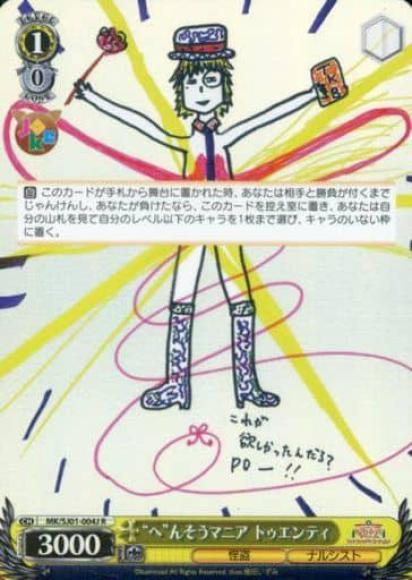 LEVEL
1
0
COST
Joke
自 このカードが手札から舞台に置かれた時、あなたは相手と勝負が付くまで
じゃんけんし、あなたが負けたなら、このカードを控え室に置き、あなたは自
分の山札を見て自分のレベル以下のキャラを1枚まで選び、キャラのいない枠
に置く。
これが
欲しかったんだろ?
PO ー !!
CH MK/SJ01-004J R
“へ”んそうマニア トゥエンティ
3000
怪盗
ナルシスト